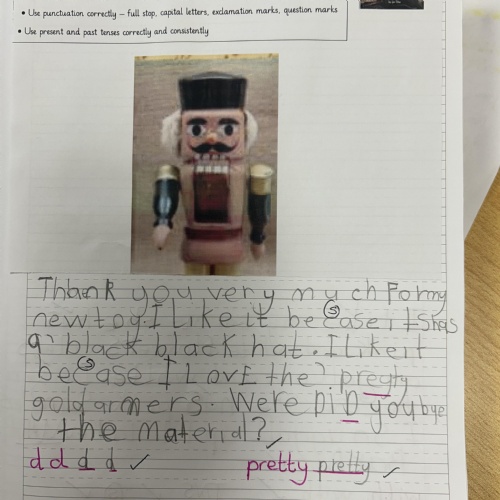 • Use punctuation correctly – full stop, capital letters, exclamation marks, question marks
• Use present and past tenses correctly and consistently
Thank you very much For my
new toy. I Like it becase it shas
a black black hat. I Like it
becase I LovE the pregty
gold armers. Were DiD you bye
the material?
d d d d pretty pretty